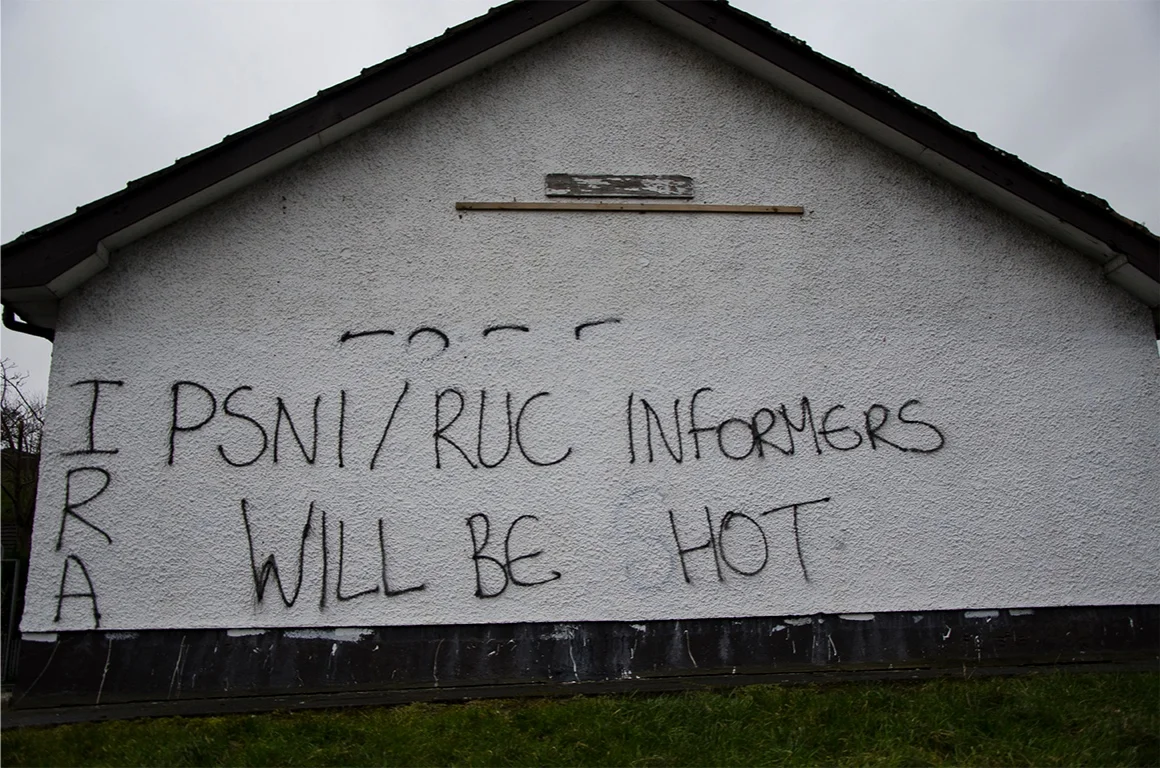 IRA
PSNI/RUC INFORMERS
WILL BE HOT